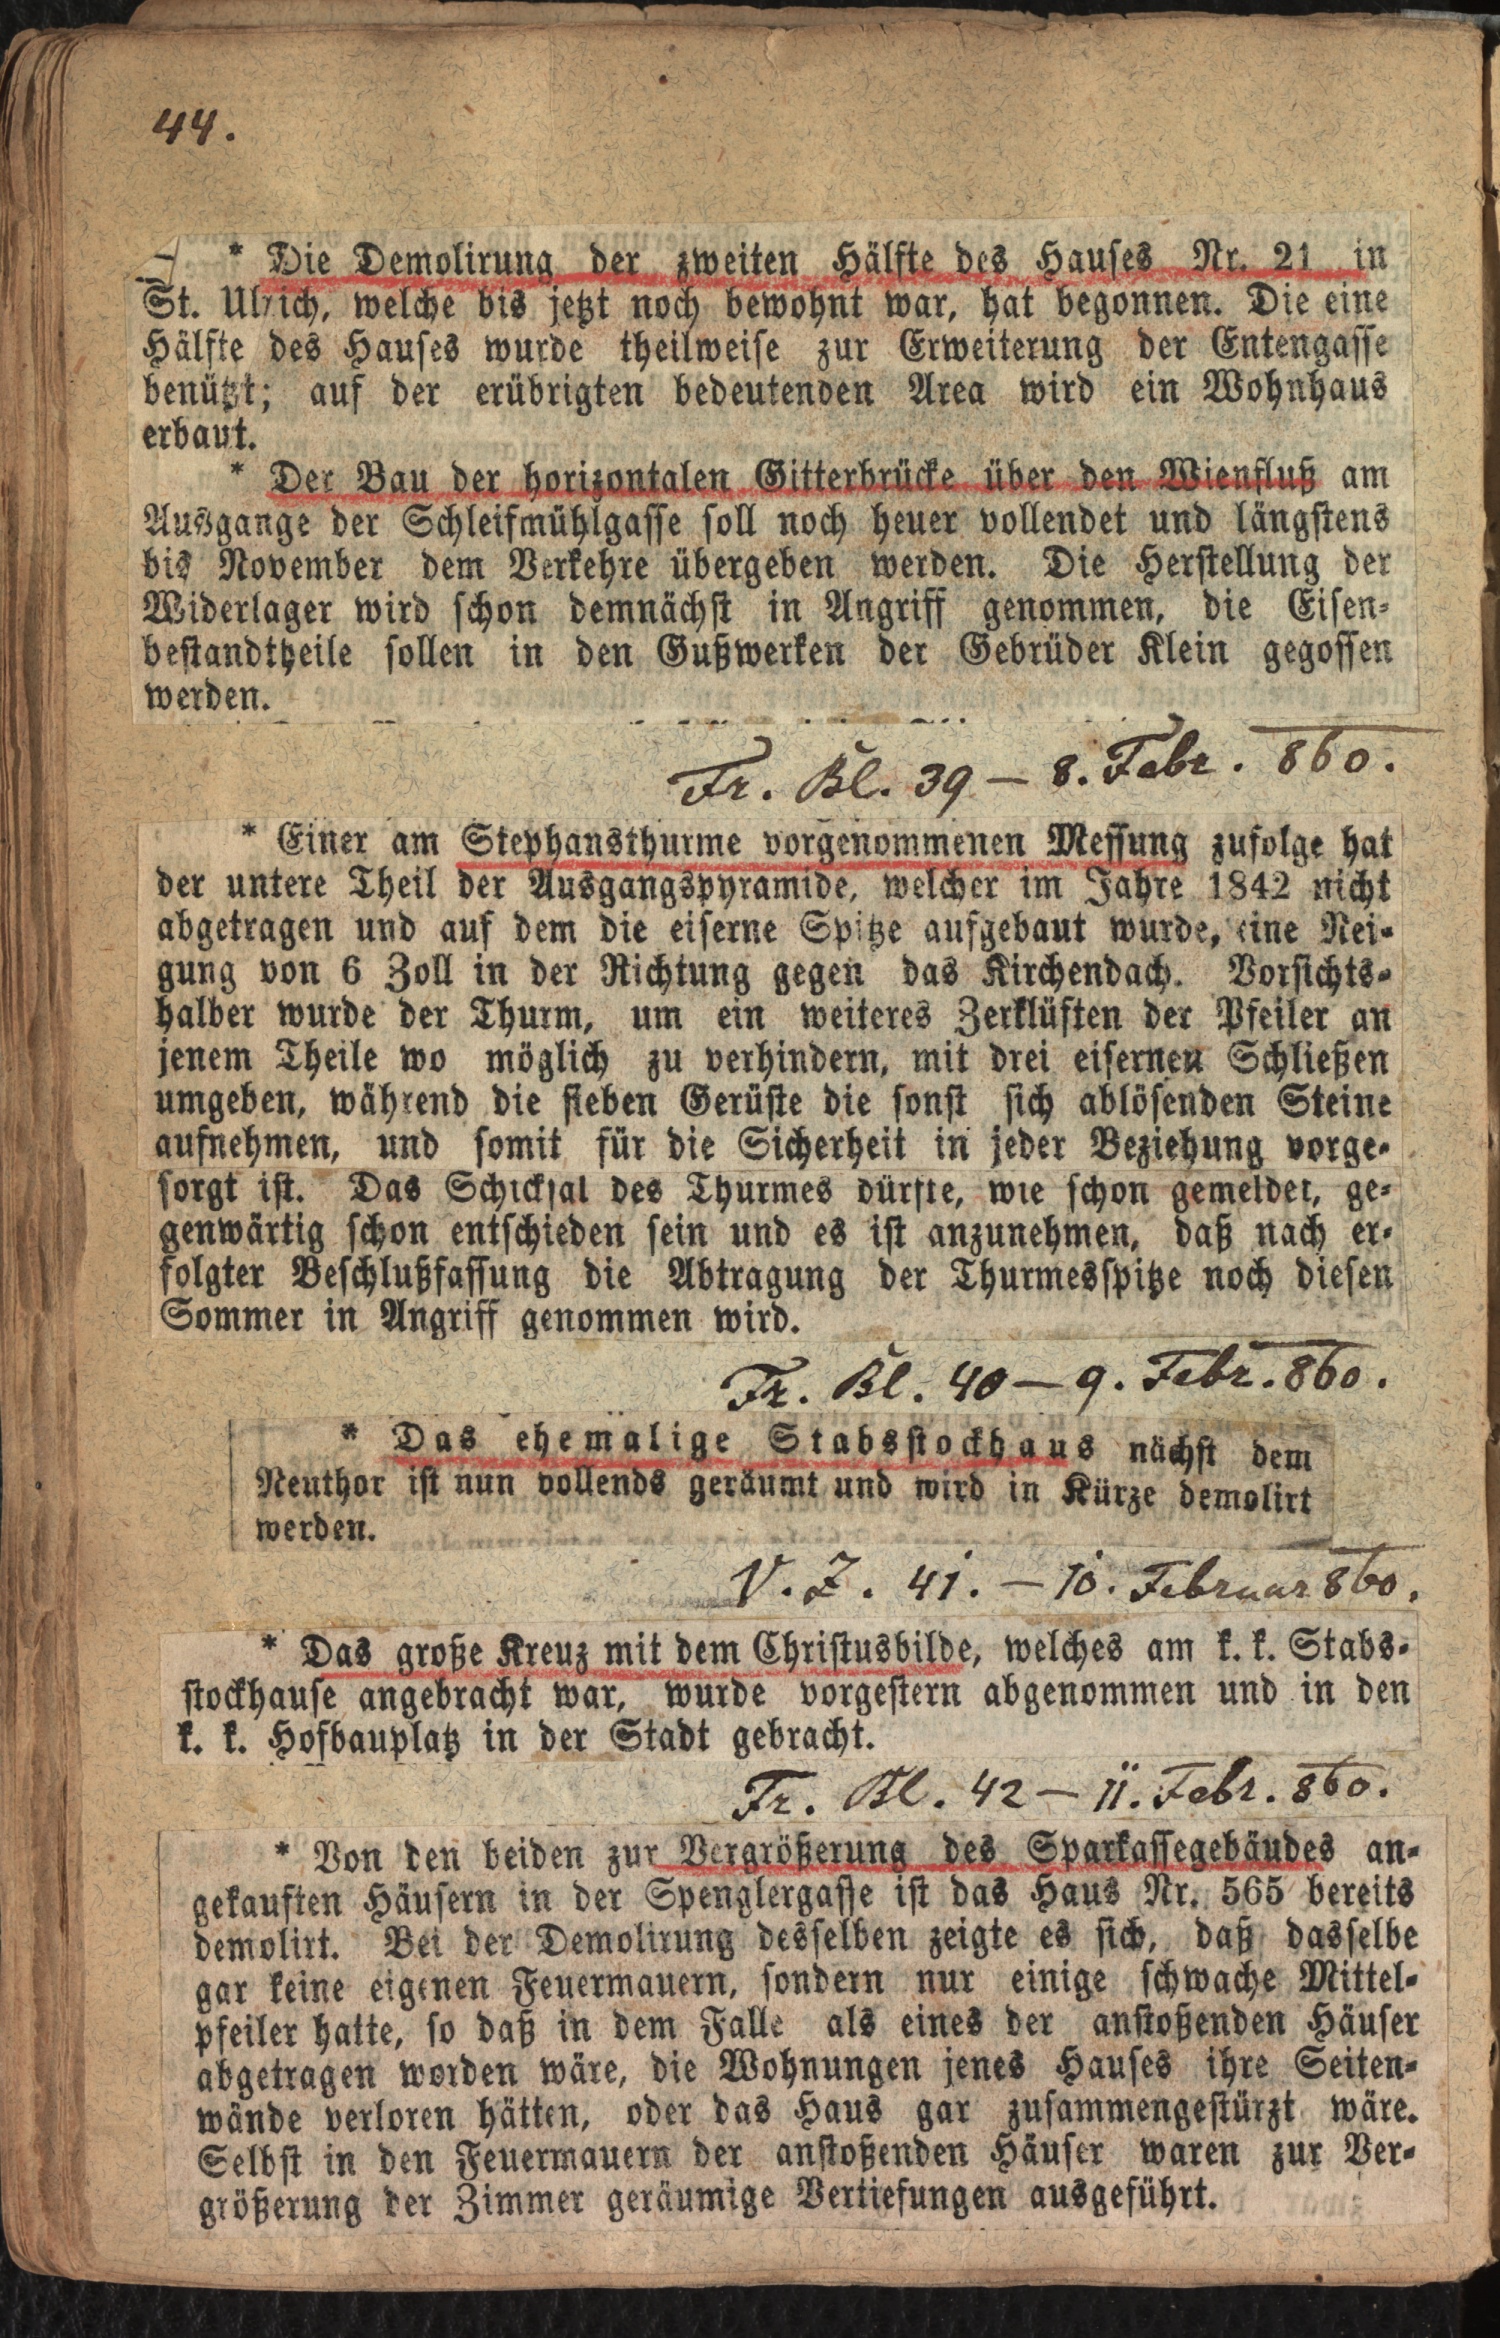 44.
* Die Demolirung der zweiten Hälfte des Hauses Nr. 21 in
St. Ulrich, welche bis jetzt noch bewohnt war, hat begonnen. Die eine
Hälfte des Hauses wurde theilweise zur Erweiterung der Entengasse
benützt; auf der erübrigten bedeutenden Area wird ein Wohnhaus
erbaut.
* Der Bau der horizontalen Gitterbrücke über den Wienfluß am
Ausgange der Schleifmühlgasse soll noch heuer vollendet und längstens
bis November dem Verkehre übergeben werden. Die Herstellung der
Widerlager wird schon demnächst in Angriff genommen, die Eisen-
bestandtheile sollen in den Gußwerken der Gebrüder Klein gegossen
werden.
Fr. Bl. 39 — 8. Febr. 860.
* Einer am Stephansthurme vorgenommenen Messung zufolge hat
der untere Theil der Ausgangspyramide, welcher im Jahre 1842 nicht
abgetragen und auf dem die eiserne Spitze aufgebaut wurde, eine Nei-
gung von 6 Zoll in der Richtung gegen das Kirchendach. Vorsichts-
halber wurde der Thurm, um ein weiteres Zerklüften der Pfeiler an
jenem Theile wo möglich zu verhindern, mit drei eisernen Schließen
umgeben, während die sieben Gerüste die sonst sich ablösenden Steine
aufnehmen, und somit für die Sicherheit in jeder Beziehung vorge-
sorgt ist. Das Schicksal des Thurmes dürfte, wie schon gemeldet, ge-
genwärtig schon entschieden sein und es ist anzunehmen, daß nach er-
folgter Beschlußfassung die Abtragung der Thurmesspitze noch diesen
Sommer in Angriff genommen wird.
Fr. Bl. 40 — 9. Febr. 860.
* Das ehemalige Stabsstockhaus nächst dem
Neuthor ist nun vollends geräumt und wird in Kürze demolirt
werden.
V. Z. 41. — 10. Februar 860.
* Das große Kreuz mit dem Christusbilde, welches am k. k. Stabs-
stockhause angebracht war, wurde vorgestern abgenommen und in den
k. k. Hofbauplatz in der Stadt gebracht.
Fr. Bl. 42 — 11. Febr. 860.
* Von den beiden zur Vergrößerung des Sparkassegebäudes an-
gekauften Häusern in der Spenglergasse ist das Haus Nr. 565 bereits
demolirt. Bei der Demolirung desselben zeigte es sich, daß dasselbe
gar keine eigenen Feuermauern, sondern nur einige schwache Mittel-
pfeiler hatte, so daß in dem Falle als eines der anstoßenden Häuser
abgetragen worden wäre, die Wohnungen jenes Hauses ihre Seiten-
wände verloren hätten, oder das Haus gar zusammengestürzt wäre.
Selbst in den Feuermauern der anstoßenden Häuser waren zur Ver-
größerung der Zimmer geräumige Vertiefungen ausgeführt.